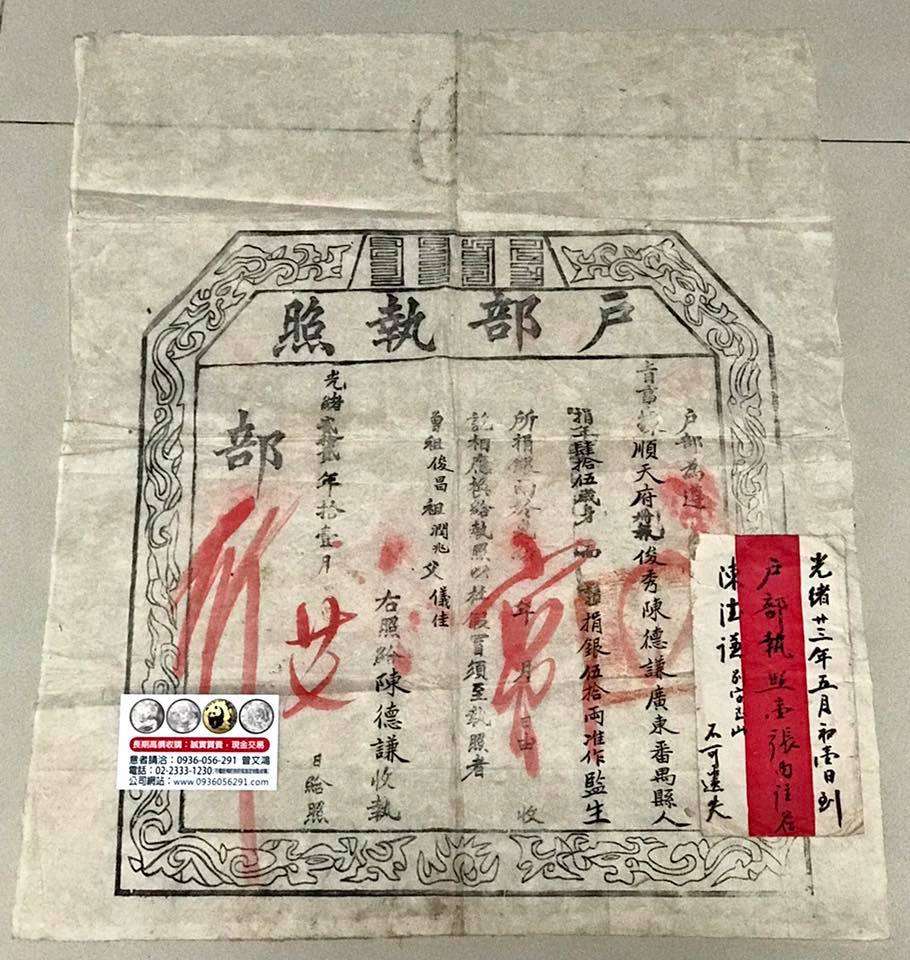 戶部執照
戶部為遵
順天府俊秀陳德謙廣東番禺縣人
捐年肆拾伍歲身面捐銀伍拾兩准作監生
所捐銀兩於年月日由收
訖相應換給執照以杜假冒須至執照者
曾祖俊昌祖潤兆父儀佳
右照給陳德謙收執
光緒貳拾貳年拾壹月日給照
部
光緒廿三年五月初壹日到
戶部執照壹張內註名
陳德謙
不可遺失
長期高價收購:誠實買賣,現金交易
意者請洽:0936-056-291 曾文鴻
電話:02-2333-1230
公司網站:www.0936056291.com